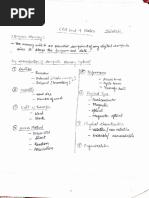 COA Unit 4 Notes
Memory :
→ The memory unit is an essential component of any digital computer
since it stores the program and data.
Key characteristics of computer memory system
① Location
- Processor
- Internal (main)
- External (secondary)
② Capacity
- Word size
- Number of words
③ Unit of Transfer
- Word
- Block
④ Access Method
- Sequential
- Direct
- Random
- Associative
⑤ Performance
- Access time
- Cycle time
- Transfer rate
⑥ Physical Type
- Semiconductor
- Magnetic
- Optical
- Magneto-optical
⑦ Physical characteristics
- Volatile / non-volatile
- Erasable / nonerasable
⑧ Organization